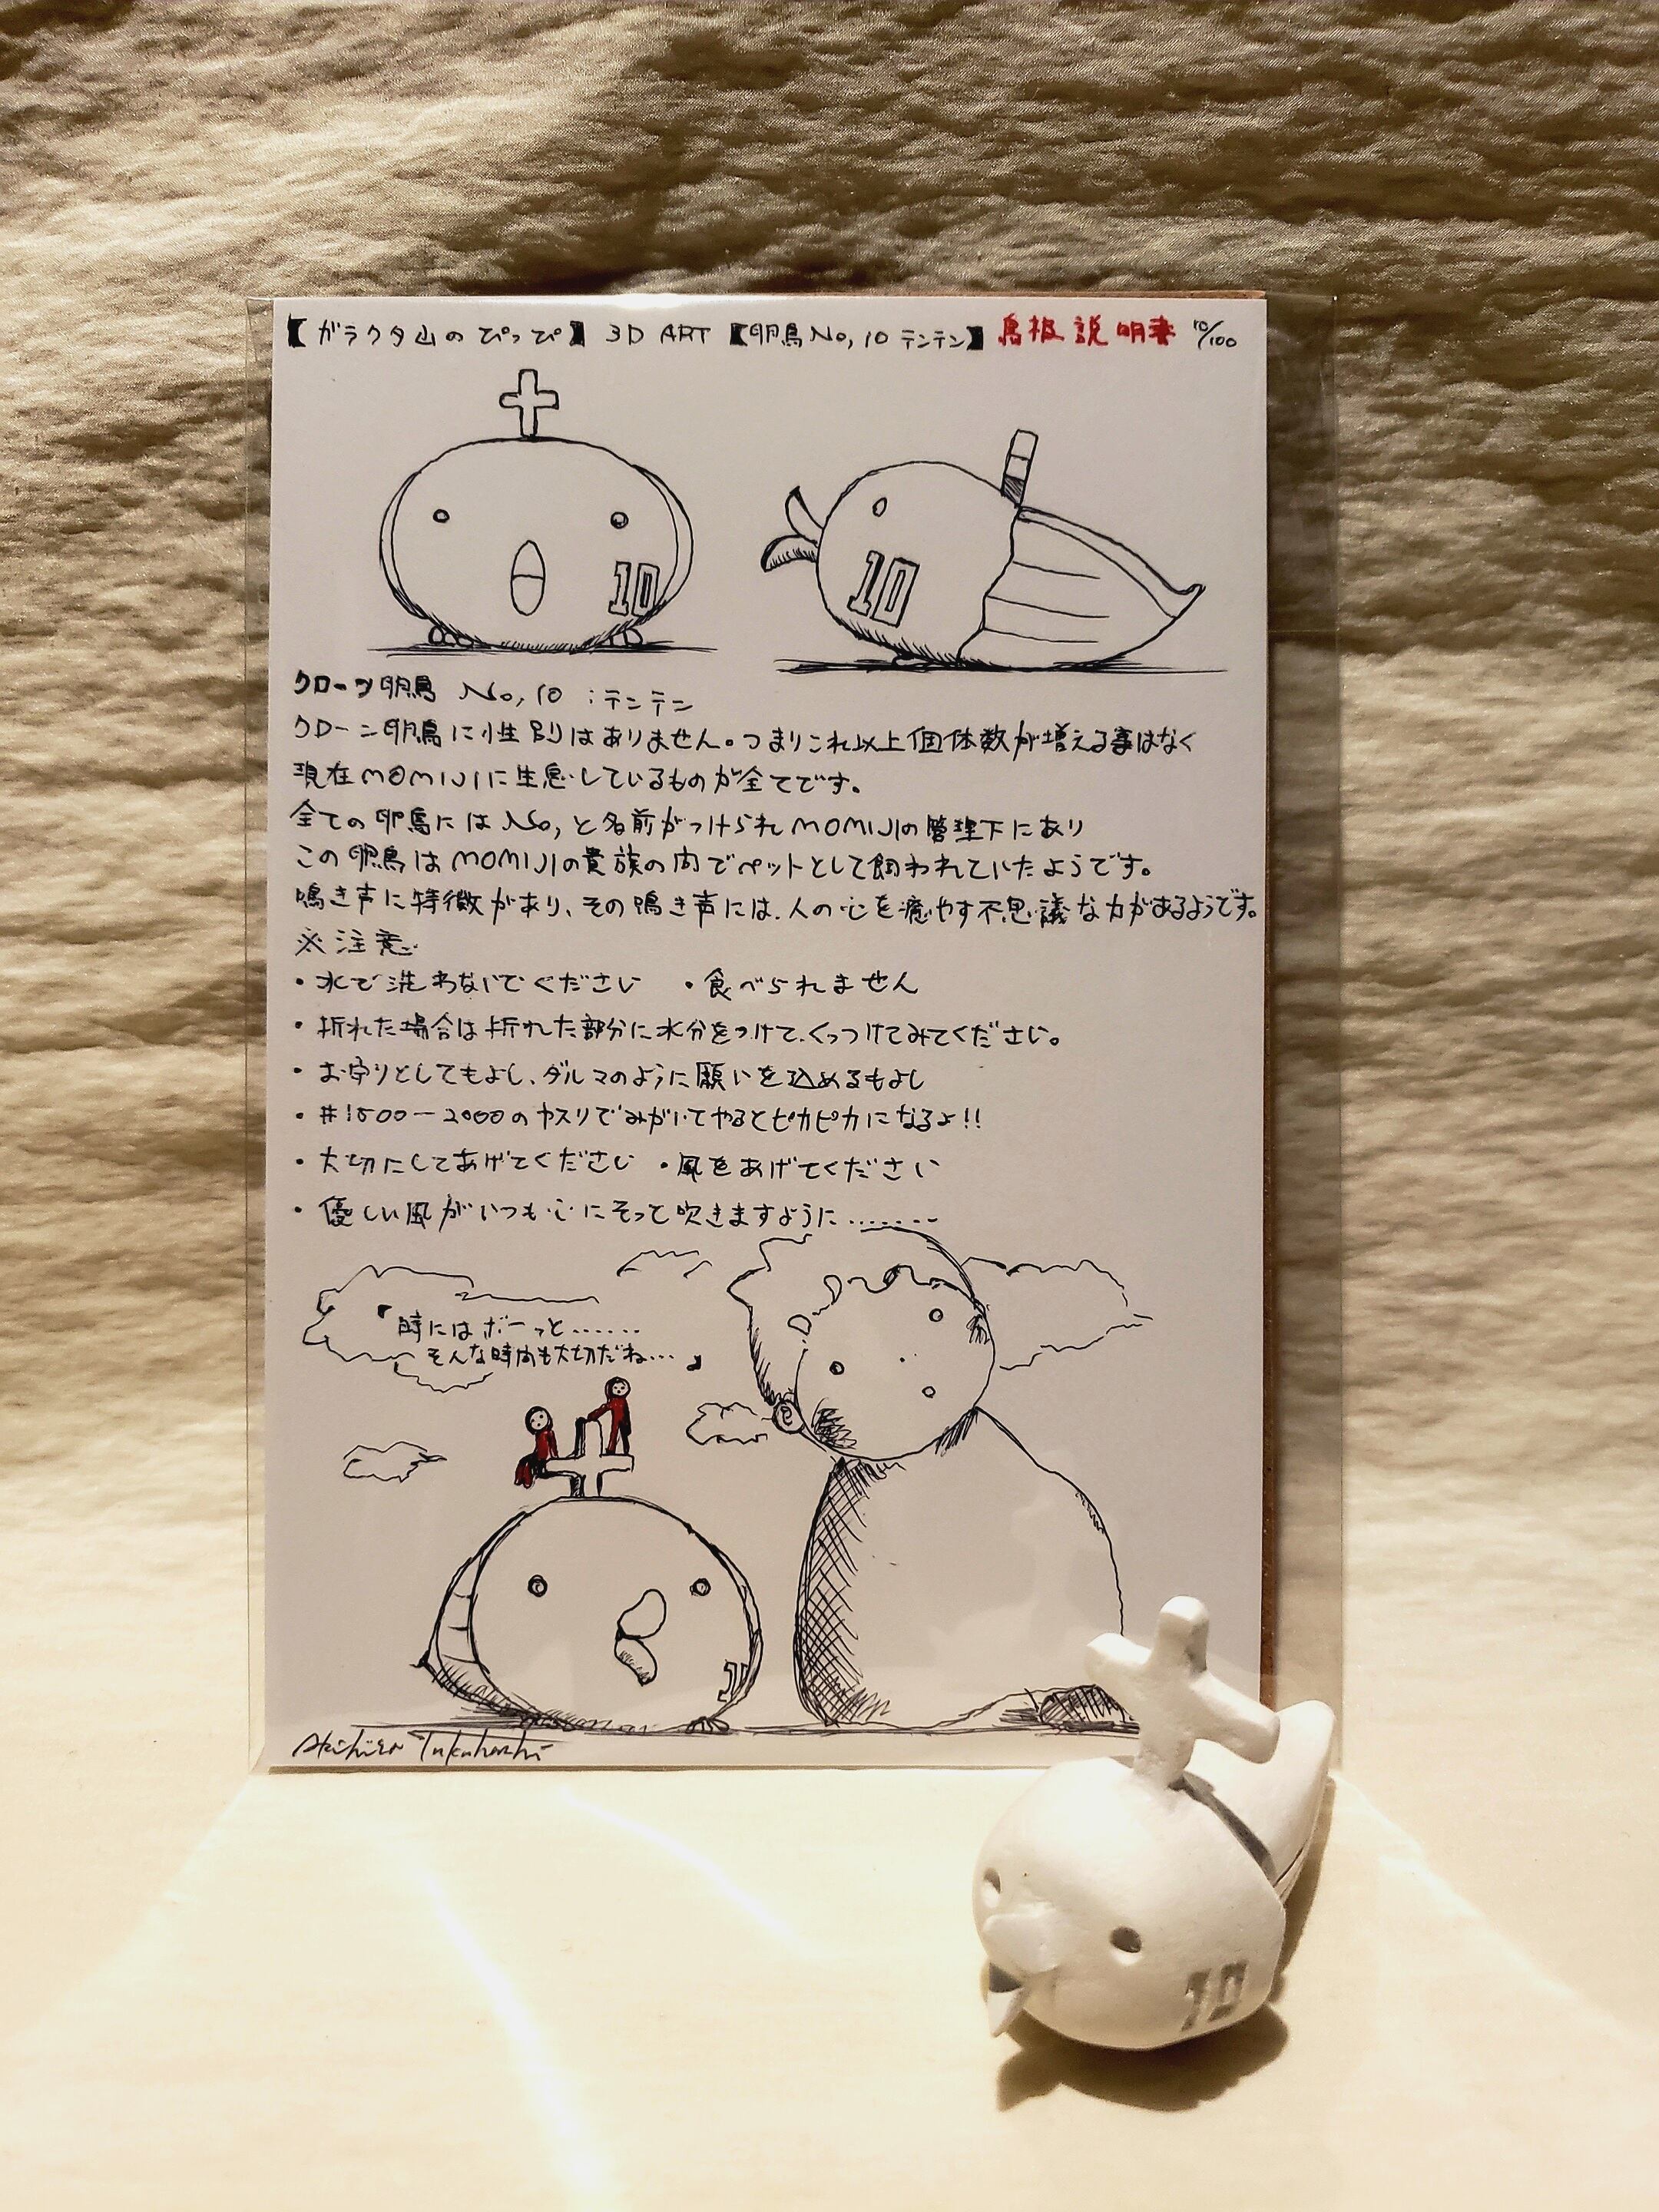 【ガラクタ山のぴっぴ】 3D ART 【卵鳥No,10 テンテン】 鳥板説明書 10/100
10
10
クローン卵鳥 No,10 :テンテン
クローン卵鳥に性別はありません。つまりこれ以上個体数が増える事はなく
現在MOMIJIに生息しているものが全てです。
全ての卵鳥にはNo,と名前がつけられMOMIJIの管理下にあり
この卵鳥はMOMIJIの貴族の間でペットとして飼われていたようです。
鳴き声に特徴があり、その鳴き声には、人の心を癒やす不思議な力があるようです。
※注意
・水で洗わないでください ・食べられません
・折れた場合は折れた部分に水分をつけて、くっつけてみてください。
・お守りとしてもよし、ダルマのように願いを込めるもよし
・#1500ー2000のヤスリでみがいてやるとピカピカになるよ!!
・大切にしてあげてください ・風をあげてください
・優しい風がいつも心にそって吹きますように.......
「時にはボーっと......
そんな時間も大切だね...」
Akihiro Takahashi
10